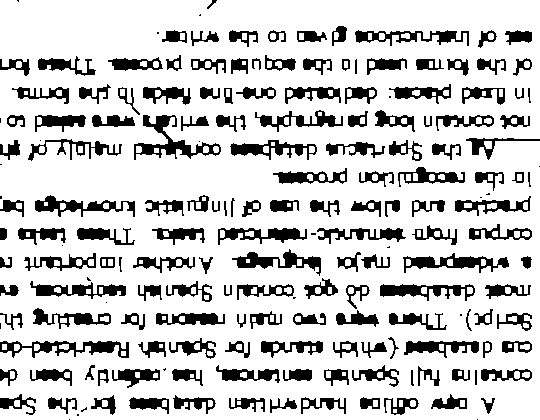 A new offline handwritten database for the Spa
contains full Spanish sentences, has recently been de
cus database (which stands for Spanish Restricted-do
Script). There were two main reasons for creating thi
most databases do not contain Spanish sentences, ev
a widespread major language. Another important re
corpus from semantic-restricted tasks. These tasks a
practice and allow the use of linguistic knowledge be
in the recognition process.
As the Spartacus database consisted mainly of
not contain long paragraphs, the writers were asked to c
in fixed places: dedicated one-line fields in the forms.
of the forms used in the acquisition process. These for
set of instructions given to the writer.